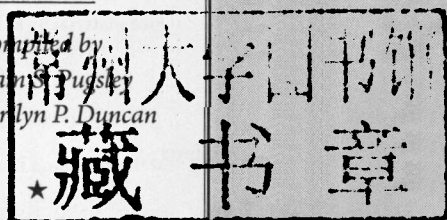 compiled by
am S. Pugsley
rilyn P. Duncan
常州大学图书馆
藏书章